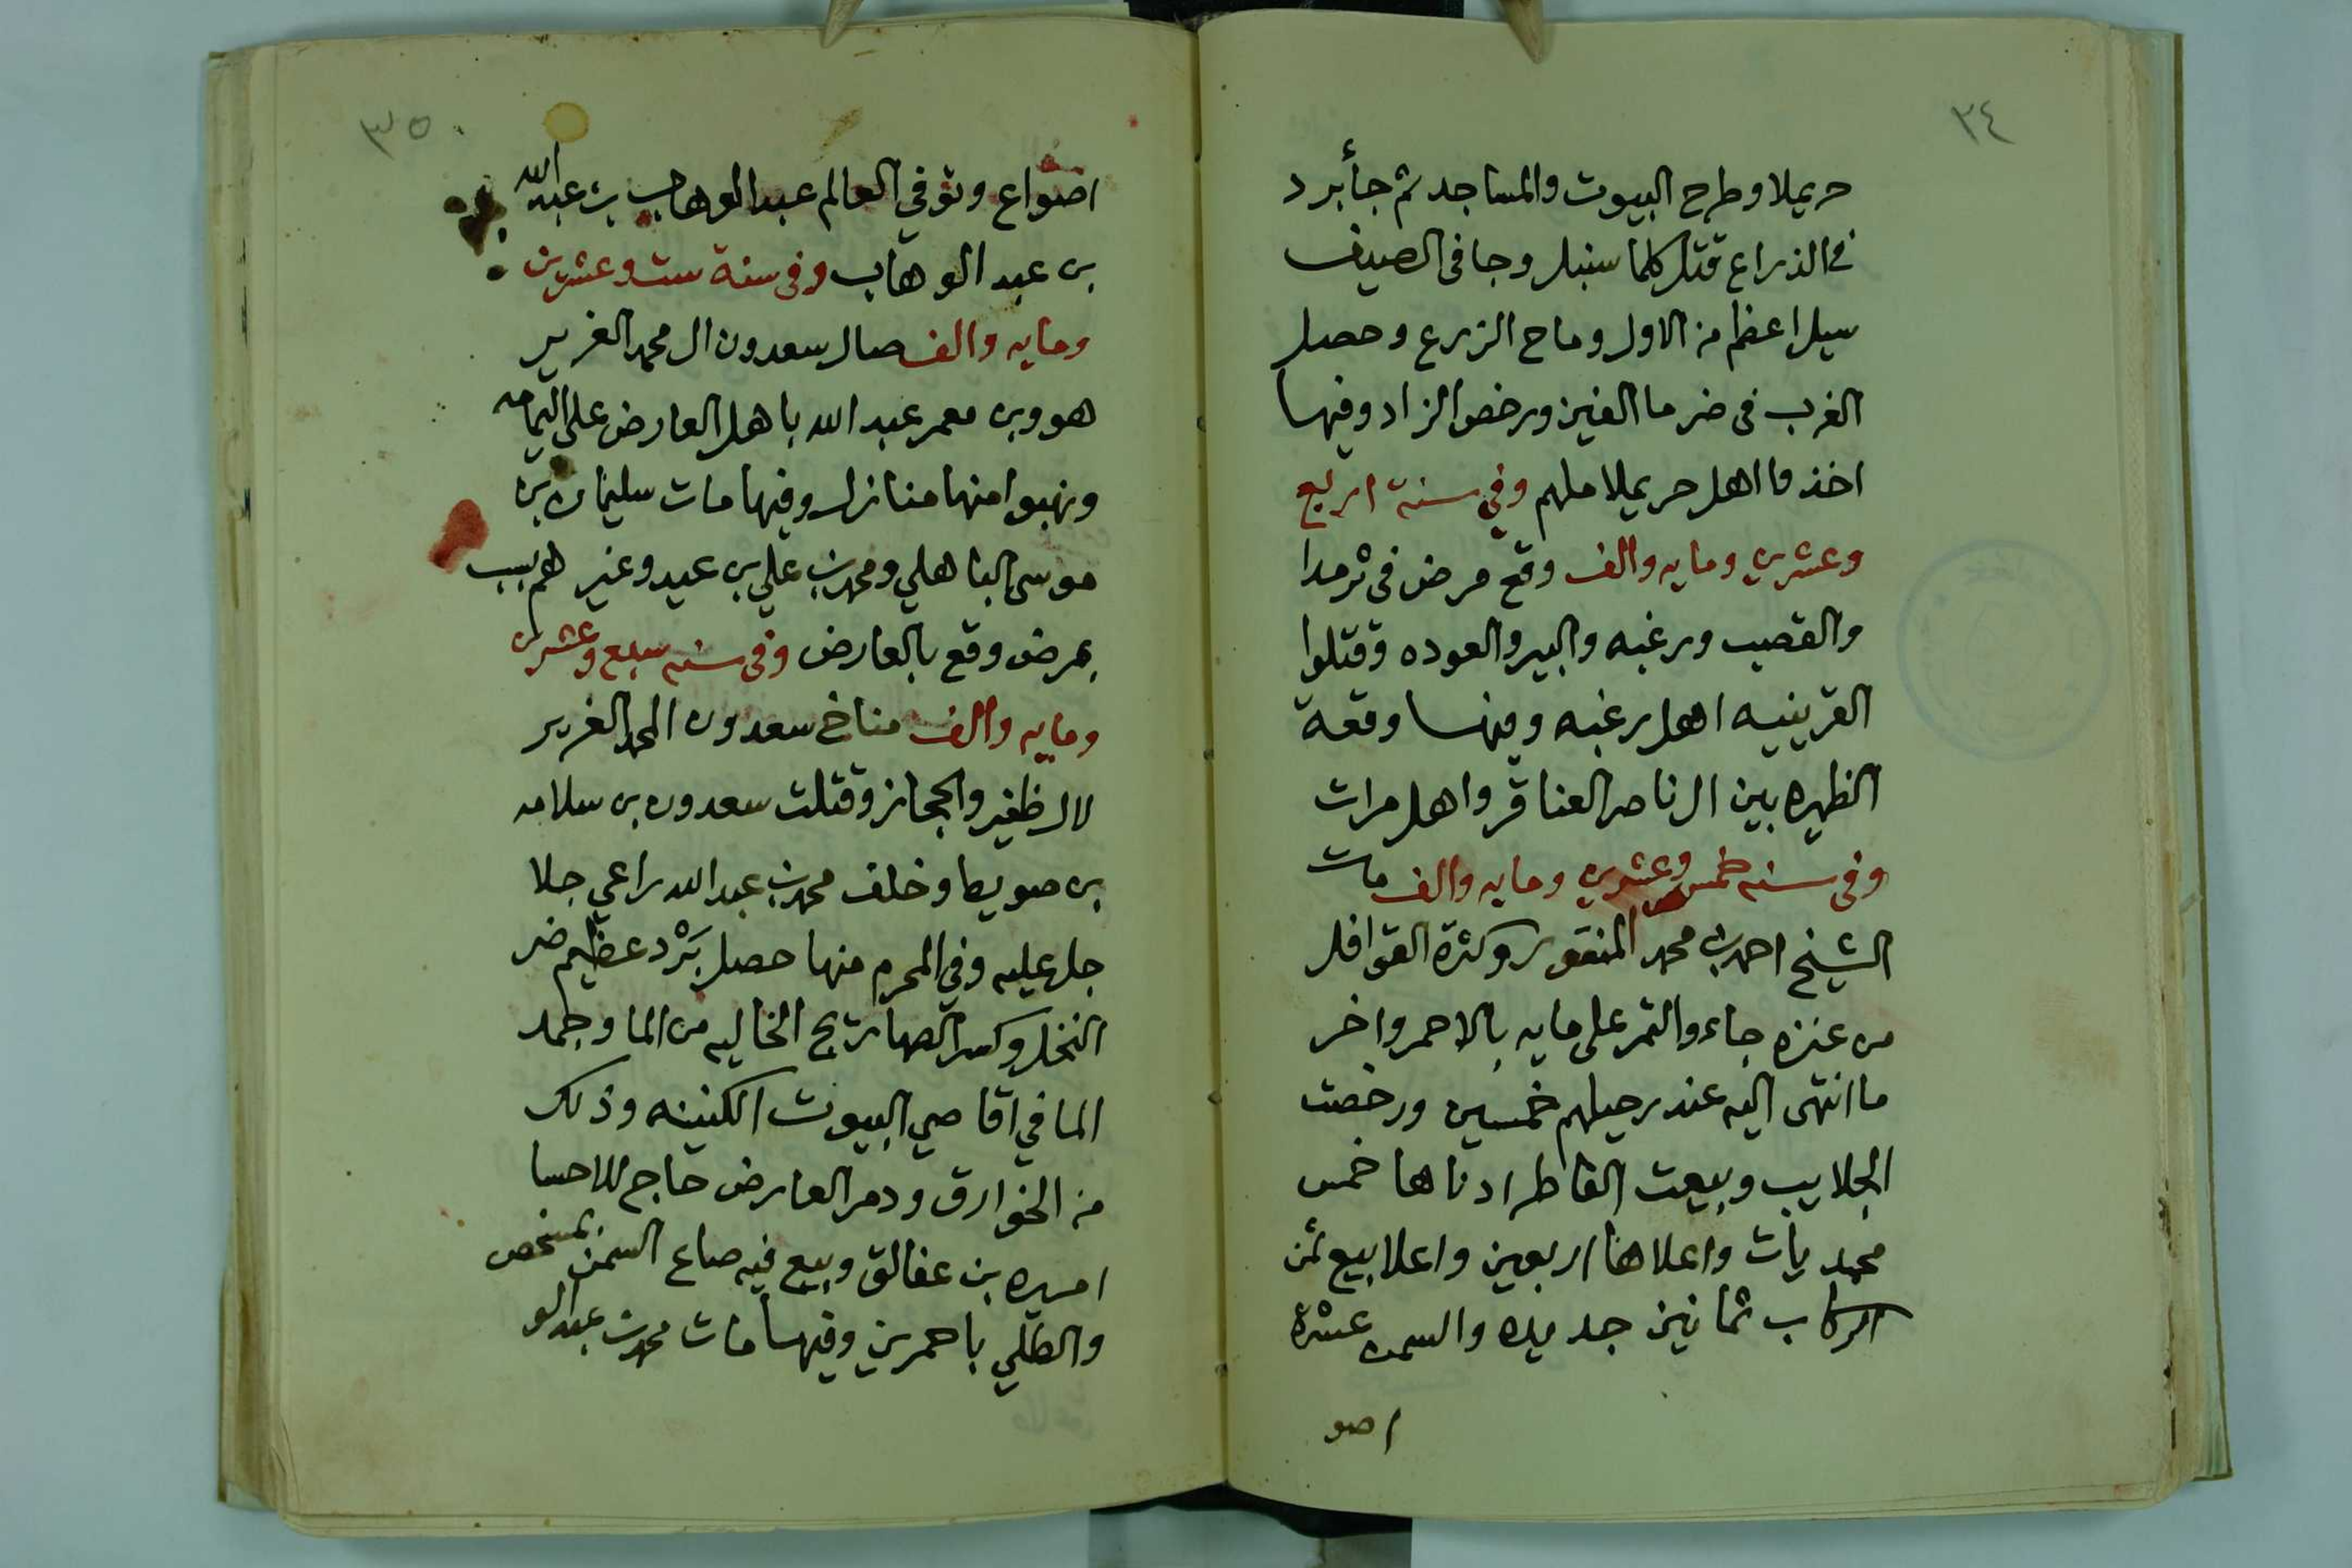 ٣٤
حريملا وطرح البيوت والمساجد ثم جأ برد
في الذراع قتل كلما سنبل وجا في الصيف
سيل اعظم من الاول وماح الزرع وحصل
الغرب في ضرما الفين ورخص الزاد وفيها
اخذوا اهل حريملا ملهم وفي سنة اربع
وعشرين ومايه والف وقع مرض في ثرمدا
والقصب ورغبه والبير والعوده وقتلوا
القرينيه اهل رغبه وفيها وقعة
الظهيره بين ال ناصر العناقر واهل مرات
وفي سنه خمس وعشرين ومايه والف مات
الشيخ احمد بن محمد المنقور وكثرة القوافل
من عنزه جاء والتمر على مايه بالاحمر واخر
ما انتهى اليه عند رحيلهم خمسين ورخصت
الجلايب وبيعت الفاطر ادناها خمس
محمديات واعلاها اربعين واعلا بيع ثمن
الركاب ثمانين جديده والسمن عشرة
اصو
٣٥
اصواع وتوفي العالم عبد الوهاب بن عبد الله
بن عبد الوهاب وفي سنة ست وعشرين
ومايه والف صال سعدون ال محمد الغرير
هو وبن معمر عبد الله باهل العارض على اليمامه
ونهبوا منها منازل وفيها مات سليمان بن
موسى الباهلي ومحمد بن علي بن عيد وغيرهم بسبب
بمرض وقع بالعارض وفي سنه سبع وعشرين
ومايه والف مناخ سعدون المحمد الغرير
لال ظفير والحجاز وقتلت سعدون بن سلامه
بن صويط وخلف محمد بن عبد الله راعي جلا
جل عليه وفي المحرم منها حصل بَرْد عظيم ضر
النخل وكسر الصهاريج الخاليه من الما وجمد
الما في اقاصي البيوت الكنينه وذلك
من الخوارق ودمر العارض حاج للاحسا
اميره بن عفالق وبيع فيه صاع السمن بمشخص
والطلي باحمرين وفيها مات محمد بن عبد الو